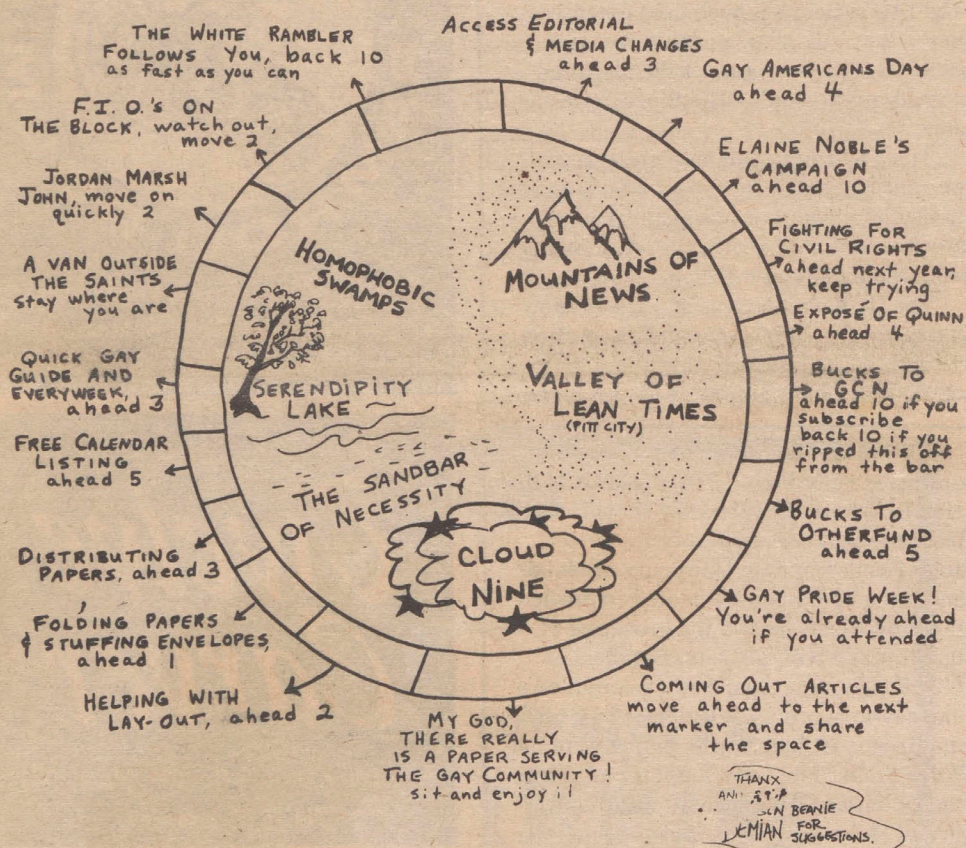 THE WHITE RAMBLER
FOLLOWS YOU, back 10
as fast as you can
ACCESS EDITORIAL
& MEDIA CHANGES
ahead 3
GAY AMERICANS DAY
ahead 4
ELAINE NOBLE'S
CAMPAIGN
ahead 10
FIGHTING FOR
CIVIL RIGHTS
ahead next year,
keep trying
EXPOSÉ OF QUINN
ahead 4
BUCKS TO
GCN
ahead 10 if you
subscribe
back 10 if you
ripped this off
from the bar
BUCKS TO
OTHERFUND
ahead 5
GAY PRIDE WEEK!
You're already ahead
if you attended
COMING OUT ARTICLES
move ahead to the next
marker and share
the space
MY GOD,
THERE REALLY
IS A PAPER SERVING
THE GAY COMMUNITY!
sit and enjoy it
HELPING WITH
LAY-OUT, ahead 2
FOLDING PAPERS
& STUFFING ENVELOPES,
ahead 1
DISTRIBUTING
PAPERS, ahead 3
FREE CALENDAR
LISTING
ahead 5
QUICK GAY
GUIDE AND
EVERYWEEK,
ahead 3
A VAN OUTSIDE
THE SAINTS
stay where
you are
JORDAN MARSH
JOHN, move on
quickly 2
F.I.O.'s ON
THE BLOCK, watch out,
move 2
HOMOPHOBIC
SWAMPS
MOUNTAINS OF
NEWS
SERENDIPITY
LAKE
VALLEY OF
LEAN TIMES
(PITT CITY)
THE SANDBAR
OF NECESSITY
CLOUD
NINE
THANX
BEANIE
FOR
SUGGESTIONS.